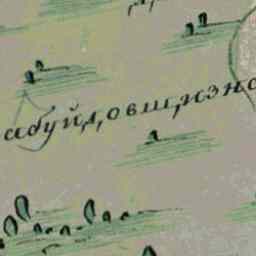 абуйдовщизно